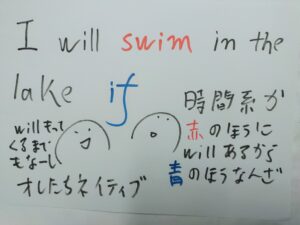 I will swim in the
lake if
時間系が
赤のほうに
willあるから
青のほうなんざ
willもって
くるまで
もなーし
オレたちネイティブ